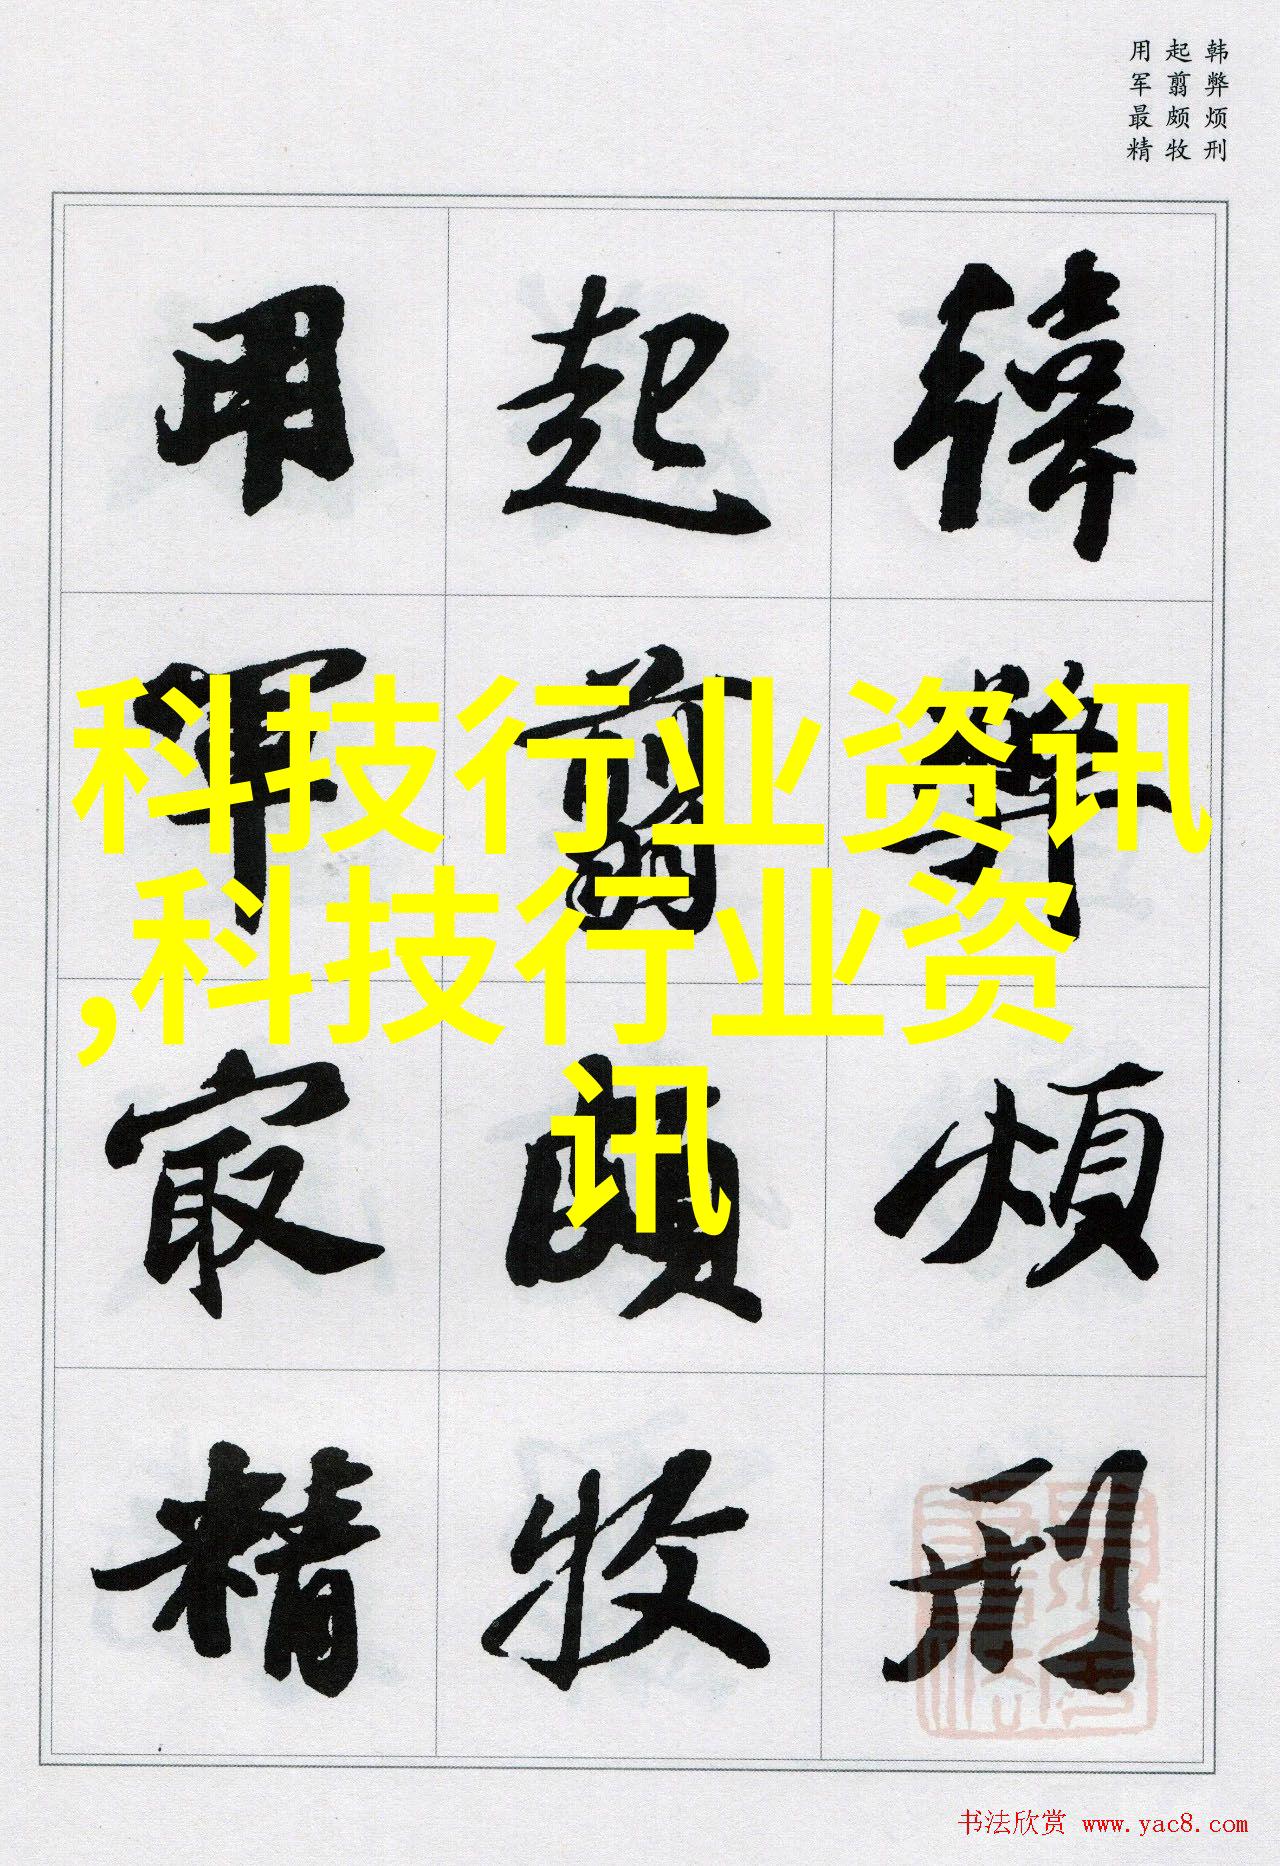 韩弊烦刑
起翦颇牧
用军最精
韩弊烦刑
起翦颇牧
用军最精
科技行业资讯
,科技行业资
讯
书法欣赏 www.yac8.com